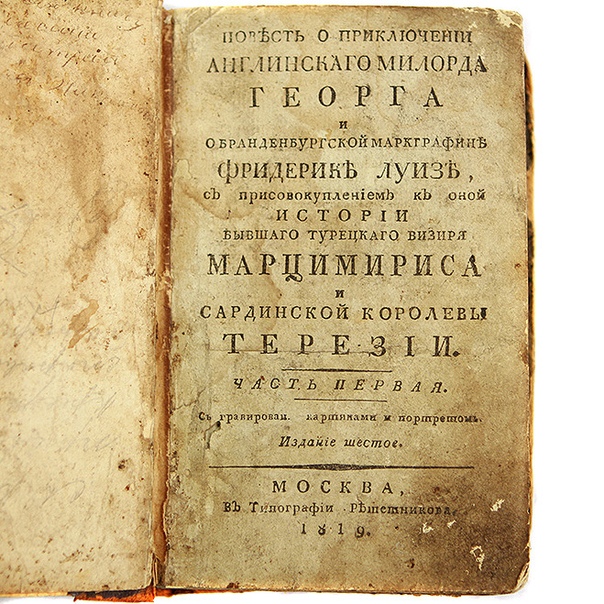 ПОВѢСТЬ О ПРИКЛЮЧЕНІИ
АНГЛИНСКАГО МИЛОРДА
ГЕОРГА
И
О БРАНДЕНБУРГСКОЙ МАРКГРАФИНѢ
ФРИДЕРИКѢ ЛУИЗѢ,
СЪ ПРИСОВОКУПЛЕНІЕМЪ КЪ ОНОЙ
ИСТОРІИ
БЫВШАГО ТУРЕЦКАГО ВИЗИРЯ
МАРЦИМИРИСА
И
САРДИНСКОЙ КОРОЛЕВЫ
ТЕРЕЗІИ.
ЧАСТЬ ПЕРВАЯ.
Съ гравирован. картинами и портретомъ.
Изданіе шестое.
МОСКВА,
Въ Типографіи Рѣшетникова.
1819.